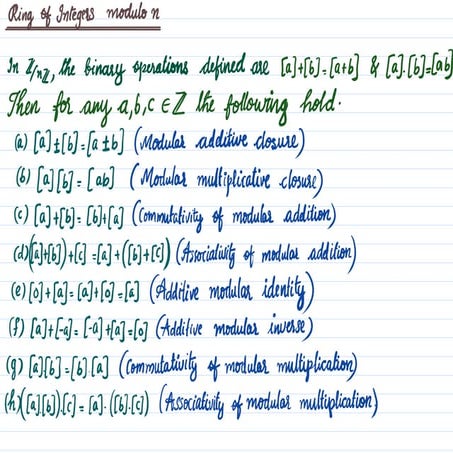 Ring of Integers modulo n
In ℤ/nℤ, the binary operations defined are [a]+[b]=[a+b] & [a].[b]=[ab]
Then for any a,b,c ∈ ℤ the following hold.
(a) [a]±[b]=[a±b] (Modular additive closure)
(b) [a][b]=[ab] (Modular multiplicative closure)
(c) [a]+[b]=[b]+[a] (Commutativity of modular addition)
(d) ([a]+[b])+[c]=[a]+([b]+[c]) (Associativity of modular addition)
(e) [0]+[a]=[a]+[0]=[a] (Additive modular identity)
(f) [a]+[-a]=[-a]+[a]=[0] (Additive modular inverse)
(g) [a][b]=[b].[a] (Commutativity of modular multiplication)
(h) ([a][b]).[c]=[a].([b].[c]) (Associativity of modular multiplication)